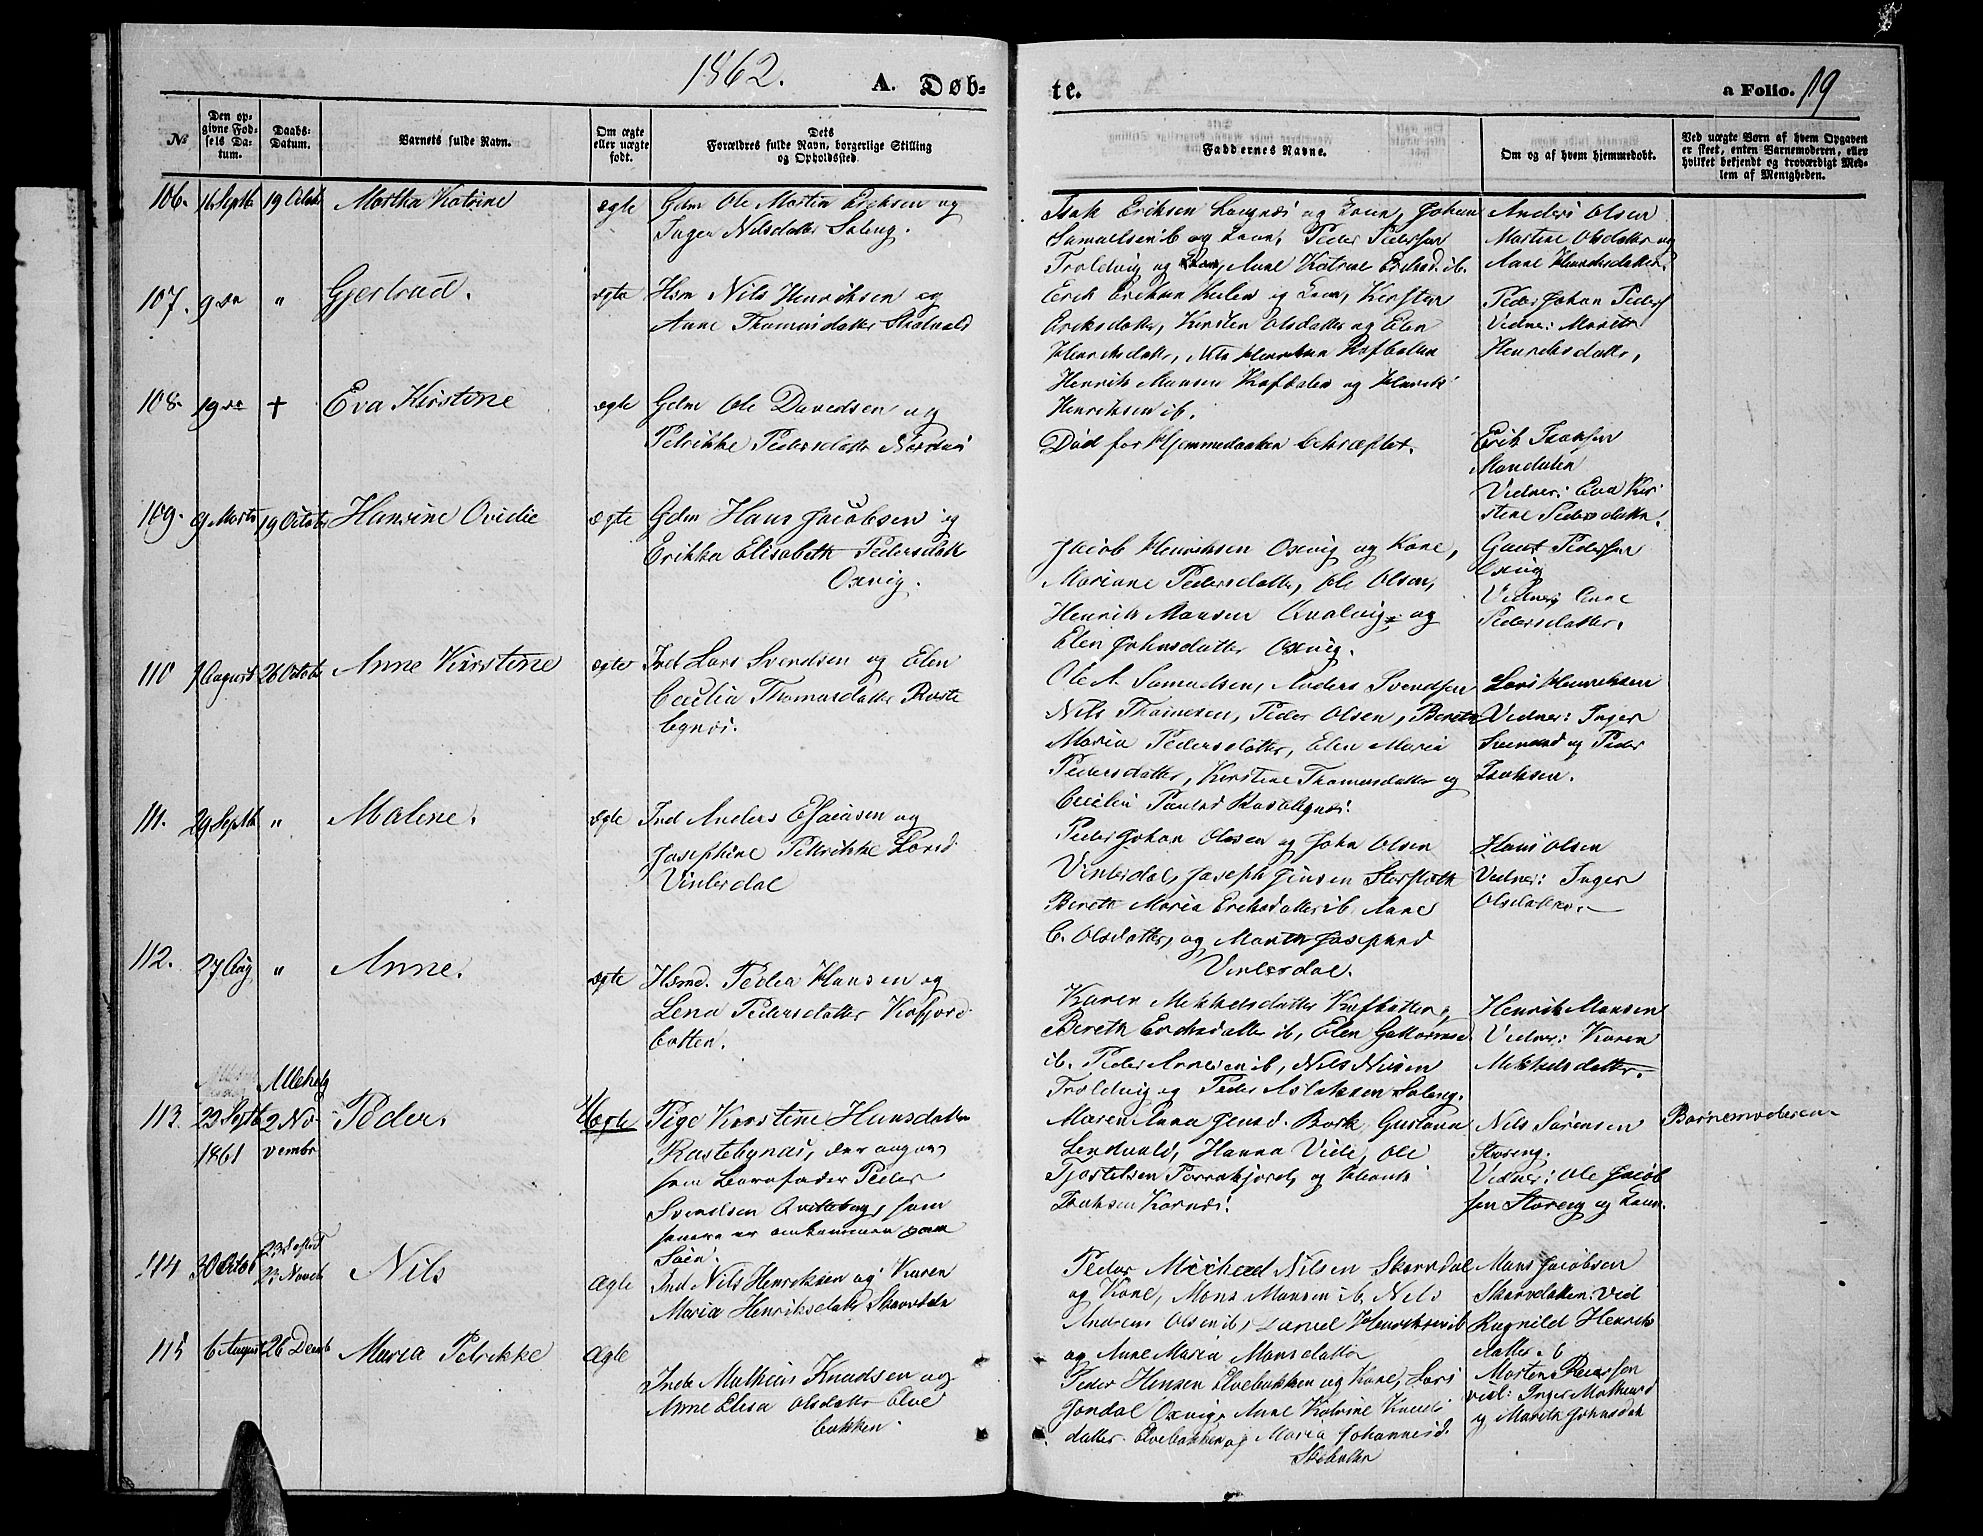 1862. A. Døb-
te. a Folio. 119
No
Den opgivne Fødsels Datum.
Daabs-Datum.
Barnets fulde Navn.
Om ægte eller uægte født.
Dets Forældres fulde Navn, borgerlige Stilling og Opholdssted.
Faddernes Navne.
Om og af hvem hjemmedøbt.
Ved uægte Børn af hvem Opgaven er skeet, enten Barnemoderen, eller hvilket bekjendt og troværdigt Medlem af Menigheden.
106. 16 Septb 19 Octob Martha Katrine ægte Gdm Ole Martin Eriksen og
Inger Nilsdatter Soleng.
Isak Eriksen Langnæs og Kone, Johan
Samuelsen ib og Kone, Peder Pedersen
Troldvig og Kone, Anne Katrine Eriksd. ib.
Anders Olsen
Martine Olsdatter og
Anne Henriksdatter.
107. 9 de " Gjertrud. ægte Hsm Nils Henriksen og
Anne Thomasdatter Skolvald
Erik Eriksen og Kone, Kirsten
Eriksdatter, Kirsten Olsdatter og Elen
Henriksdatter, Nils Henriksen Kafbotten
Henrik Monsen Kafdalen og Henrik
Henriksen ib.
Peder Johan Peders
Vidner: Marith
Henriksdatter,
108. 19 de + Eva Kirstine ægte Gdm Ole Davidsen og
Petrikke Pedersdatter Nordnæs
Død før Hjemmedaaben bekræftet.
Erik Isaksen
Mandalen
Vidner: Eva Kir
stine Pedersdatter.
109. 9 Marts 19 Octob Hansine Ovidie ægte Gdm Hans Jacobsen og
Erikka Elisabeth Pedersdatt
Oxvig.
Jacob Henriksen Oxvig og Kone,
Mariane Pedersdatter, Ole Olsen,
Henrik Monsen Qvalvig og
Elen Johnsdatter Oxvig.
Gunt Pedersen
Oxvig
Vidner:
Pedersdatter.
110 1 August 26 October Anne Kirstine ægte Ind Lars Svendsen og Elen
Cecilia Thomasdatter Raste
bynæs.
Ole A. Samuelsen, Anders Svendsen
Nils Thomesen, Peder Olsen, Bereth
Maria Pedersdatter, Elen Maria
Pedersdatter, Kirstine Thomasdatter og
Cecilia Paulsd Rastebynæs.
Lars Henriksen
Vidner: Inger
Svendsd og Peder
Isaksen.
111. 29 Septb " Malene. ægte Ind Anders Esaiasen og
Josephine Petrikke Larsd
Vinterdal
Peder Johan Olsen og John Olsen
Vinterdal, Joseph Jensen
Bereth Maria Eriksdatter ib, Anne
C. Olsdatter, og Marith Josephsd
Vinterdal.
Hans Olsen
Vidner: Inger
Olsdatter.
112. 27 Aug " Anne. ægte Hsmd. Peder Hansen og
Lena Pedersdatter Kafjord
botten.
Karen Mikkelsdatter Kafbotten,
Bereth Eriksdatter ib, Elen
ib. Peder Andersen ib, Nils Nilsen
Troldvig og Peder Aslaksen Soleng.
Henrik Monsen
Vidner: Karen
Mikkelsdatter.
113. 23 Septb 1861
Allehelg 2 November
Peder. Uægte Pige Kirstine Hansdatter
Rastebynæs, der angav
som Barnefader Peder
Svendsen Qvitteberg, som
senere er omkommen paa
Søen.
Maren Anna Jensd. Bork, Gustava
Lendvald, Hanna Vide, Ole
og Johannes
Isaksen Kornæs.
Nils Sørensen
Storeng.
Vidner: Ole Jacob
sen Storeng og Kone.
Barnemoderen
114 30 Octob 23 S e Tref 23 Novb Nils Ægte Ind Nils Henriksen og Karen
Maria Henriksdatter Skorvdaln
Peder Michael Nilsen Skorvdal
og Kone, Mons Monsen ib. Nils
Andreas Olsen ib, Henriksen ib
og Anne Maria Monsdatter
Mons Jacobsen
Skorvdalen: Vid
Ragnild Henriks
datter ib
115 6 August 26 Decemb Maria Petrikke Ægte
Inde Mathias Knudsen og
Anne Elisa Olsdatter Elve
bakken.
Peder Hansen Elvebakken og Kone, Lars
Jondal Oxvig, Anne Katrine
datter Elvebakken og Maria Johannesd.
Skibotten
Morten Pedersen
vid: Inger Mathisd
og Marith Johnsdatt